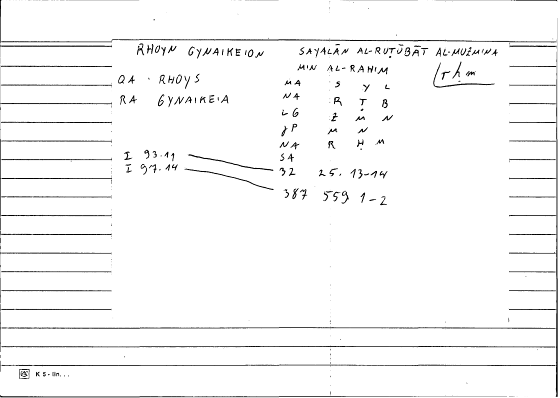 RHOYN GYNAIKEION SAYALĀN AL-RUṬŪBĀT AL-MUZMINA
MIN AL-RAHIM rḥm
QA RHOYS MA S Y L
RA GYNAIKEIA NA R Ṭ B
LG Z M N
JP M N
NA R Ḥ M
I 93.11 SA
I 97.14 32 25. 13-14
387 559 1-2
K 5 - lin. . .